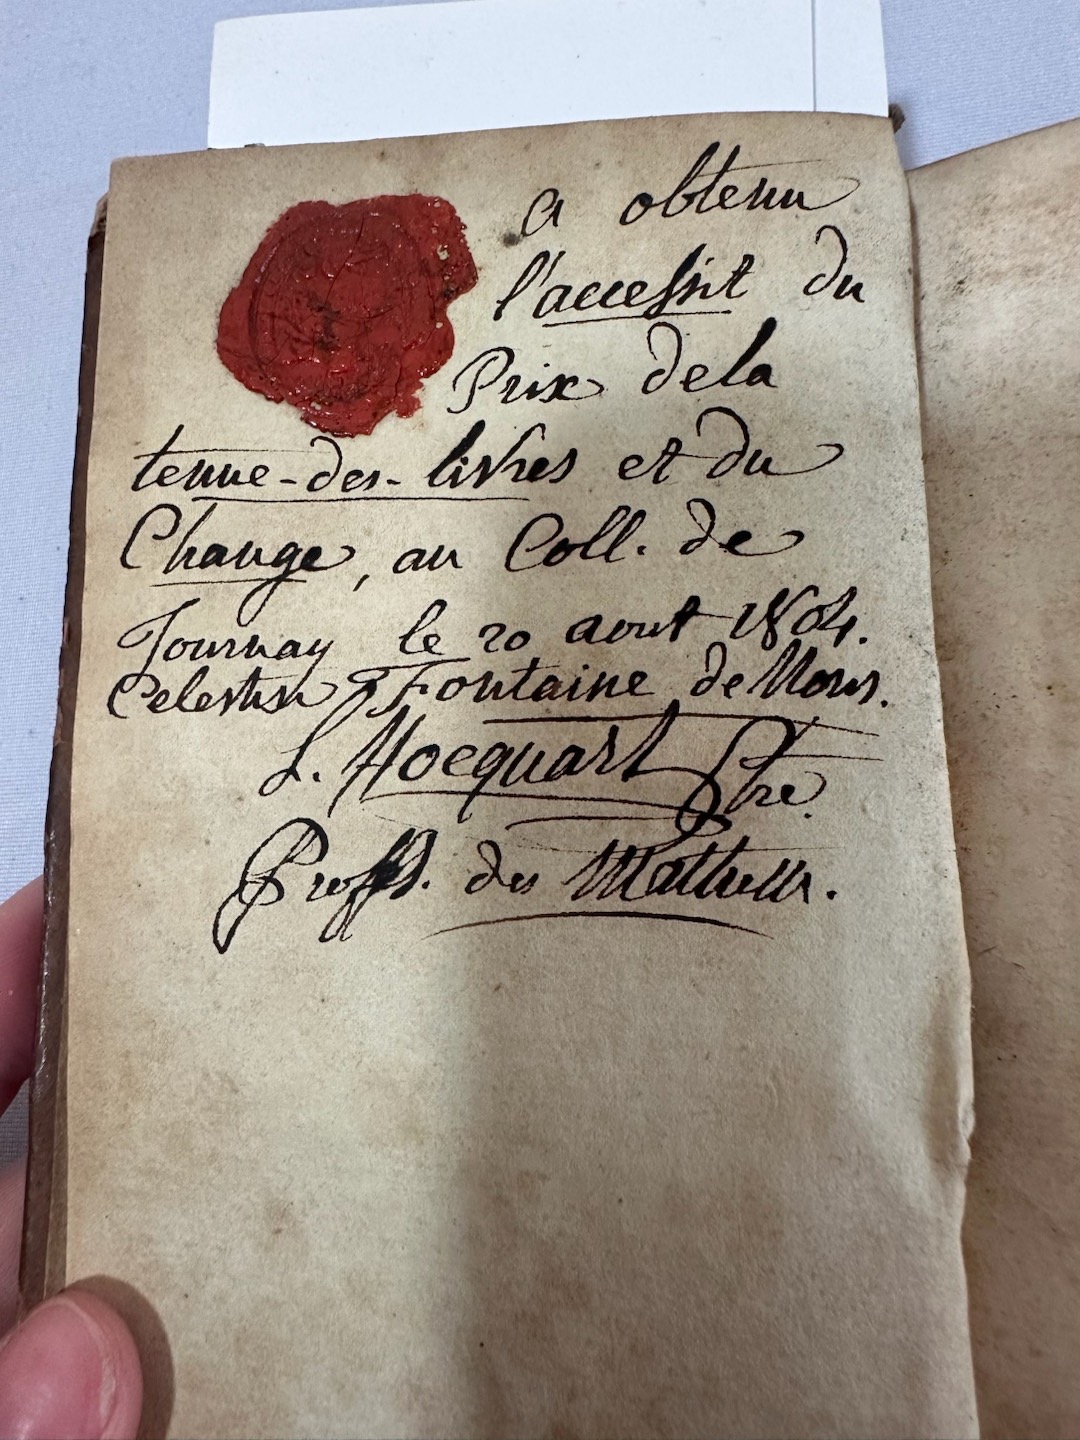 a obtenu
l'accessit du
Prix dela
tenue-des-livres et du
Change, au Coll. de
Tournay le 20 aout 1804.
Celestin Fontaine de Mons.
L. Hocquart Ptre.
Proffs. des Mathem.